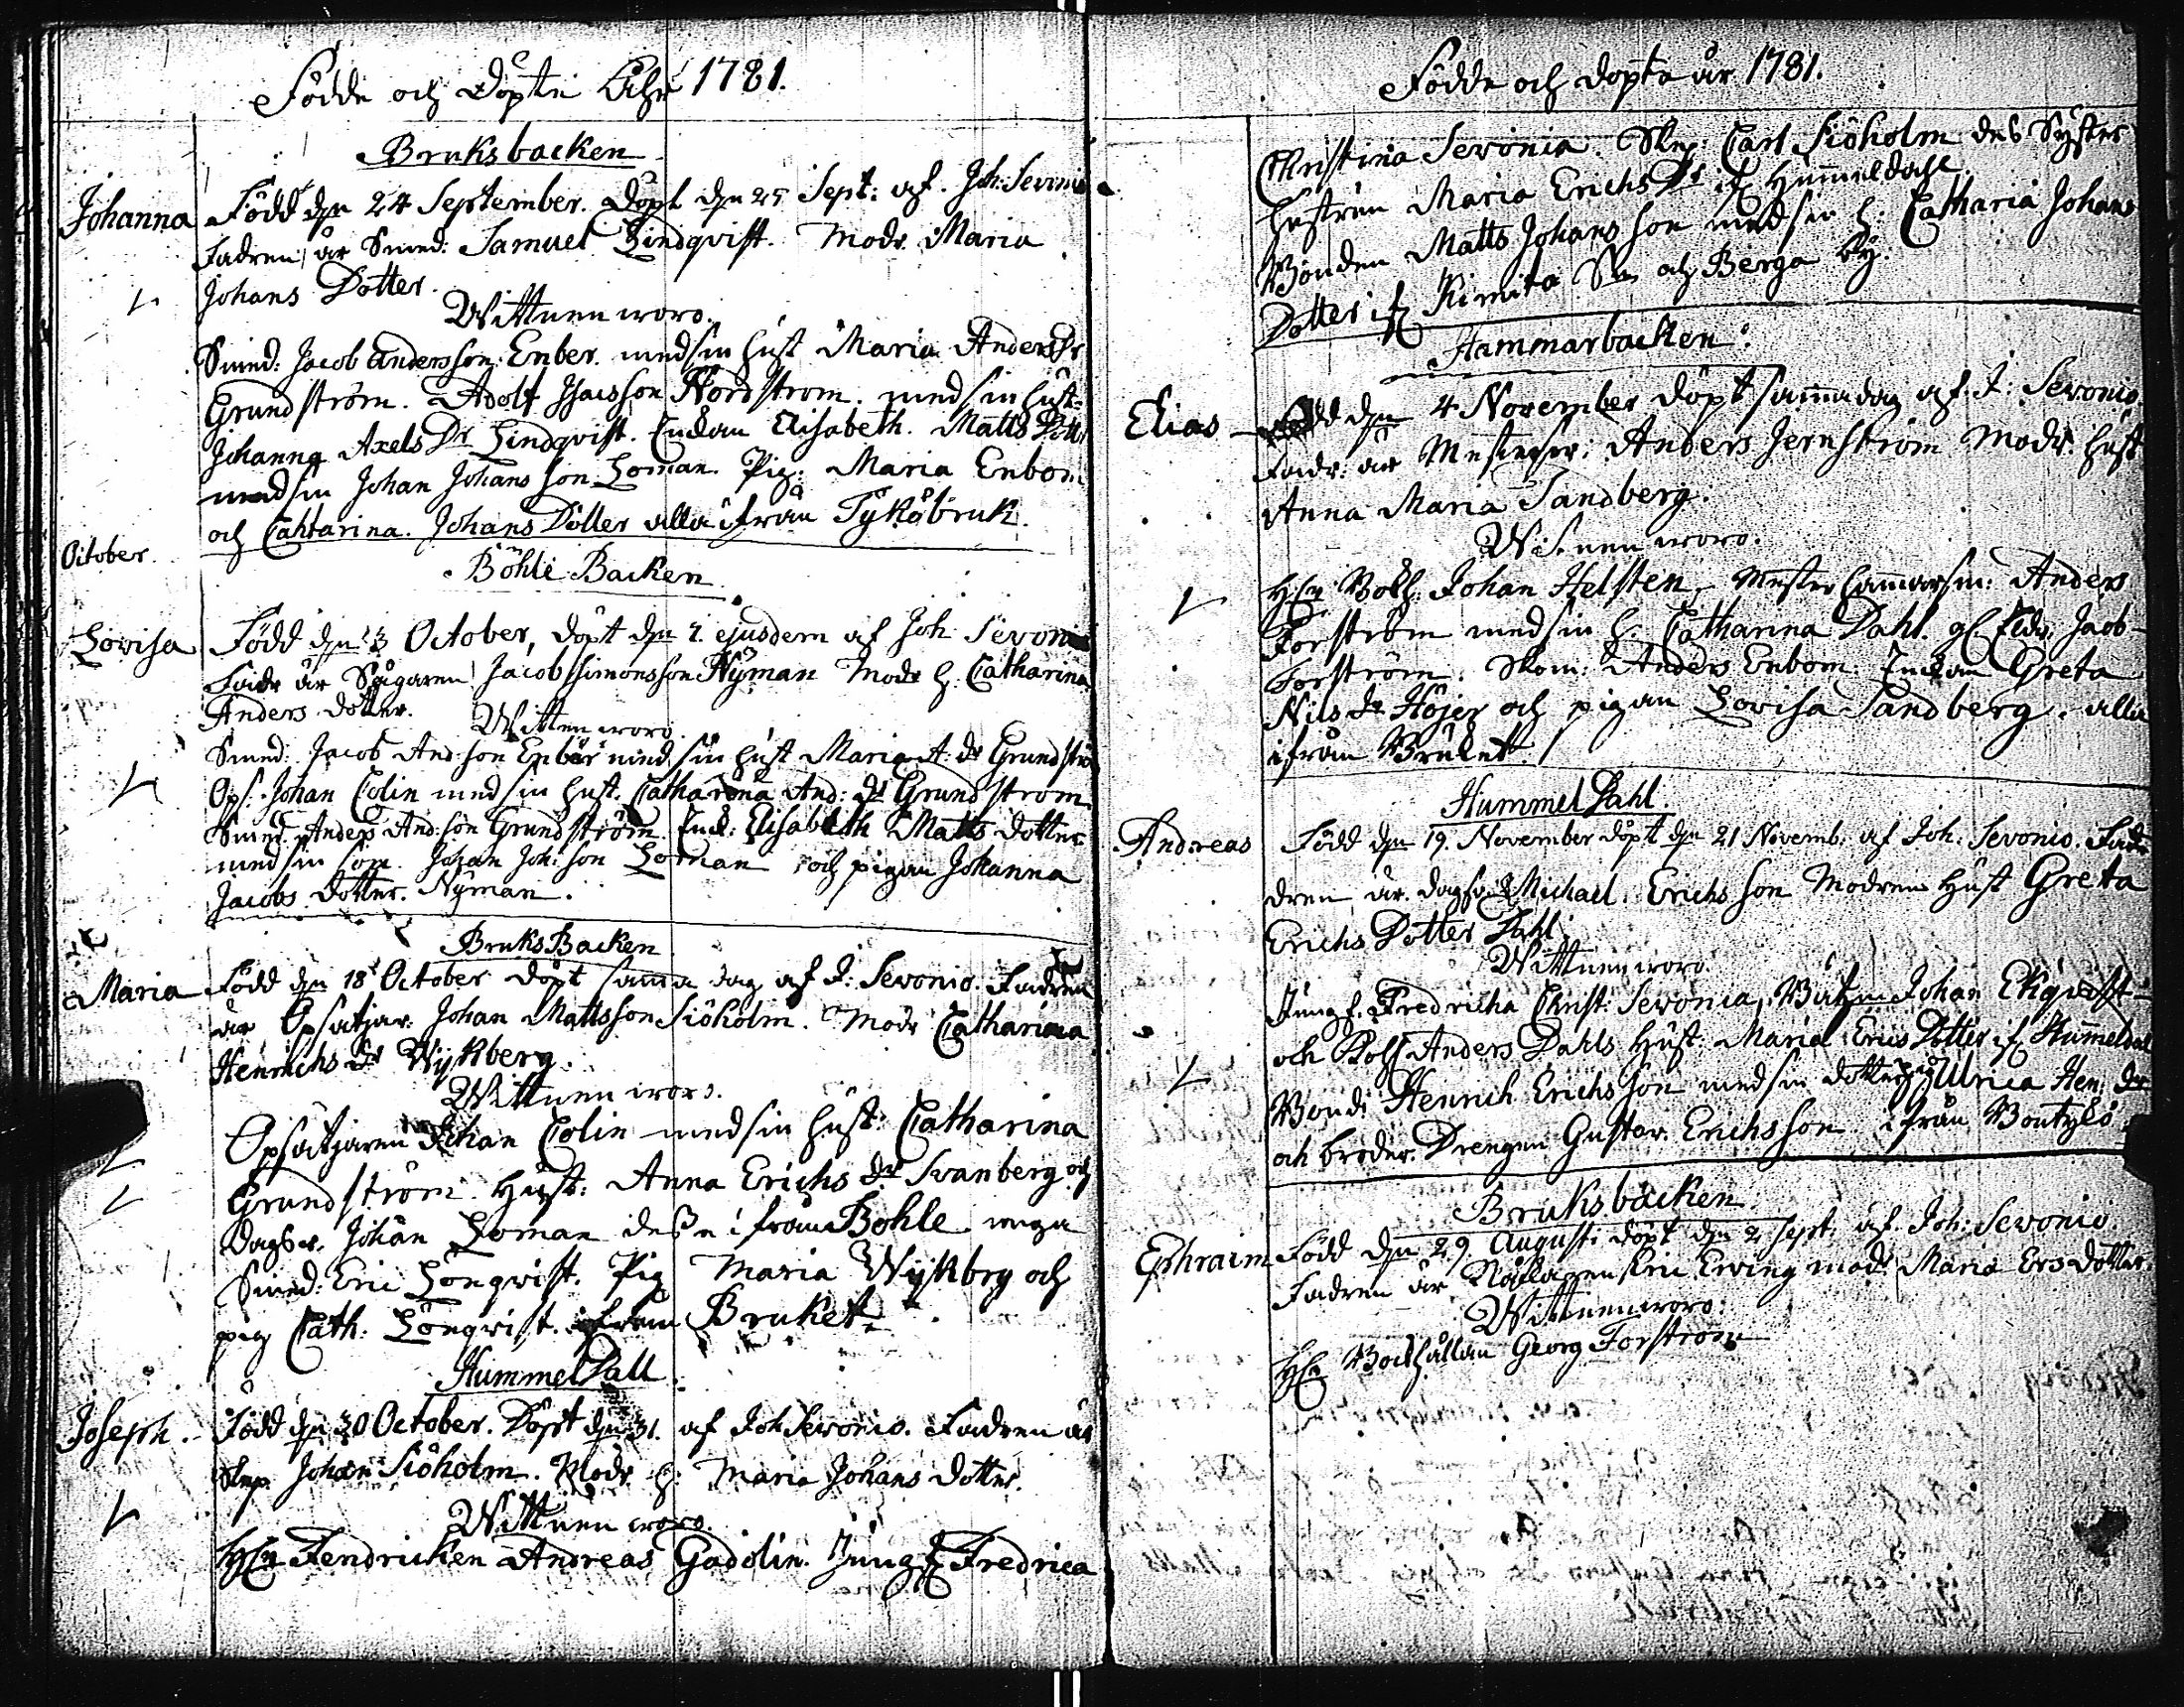 Födde och Döpte Åhr 1781.
Bruksbacken
Johanna Född den 24 September. Döpt den 25 Sept: af. Joh: Sevonio
Fadren är Smed: Samuel Lindqvist. Modr Maria
Johans Dotter.
Wittnen woro.
Smed: Jacob Andersson Enber. med sin hust Maria Anders Dr
Grundström. Adolf Isacsson Nordstrom. med sin hust
Johanna Axels Dr Lindqvist. Enckan Elisabeth. Matts Dott
med sin Johan Johans son Loman. Pig: Maria Enbom
och Cahtarina. Johans Dotter alla ifrån Tykö bruk.
October.
Böhle Backen
Lovisa Född den 3 October, döpt den 7. ejusdem af Joh Sevonio
Fadr är Sågaren Jacob Simonsson Nyman Modr h. Catharina
Anders dotter.
Wittnen woro.
Smed: Jacob And: son Enber med sin hust Maria A: dr Grundströ
Ops: Johan Colin med sin hust. Catharina And: dr Grundstrom
Smed. Anders And: son Grundström. Enck: Elisabeth Matts dotter
med sin son. Johan Joh: son Loman och pigan Johanna
Jacobs dotter. Nyman.
Bruks Backen
Maria Född den 18 October döpt samma dag af J: Sevonio. Fadren
är Opsätjar. Johan Mattsson Siöholm. Modr Catharina
Henrichs Dr Wykberg.
Wittnen woro.
Opsätjaren Johan Colin med sin hust: Catharina
Grundström. Hust: Anna Erichs dr Svanberg och
Dagkar. Johan Loman desse ifrån Bohle.
Smed: Eric Lönqvist. Pig Maria Wykbrg och
pig Cath: Lönqvist. ifrån Bruket.
Hummel Dall
Joseph. Född den 30 October. Döpt den 31. af Joh Sevonio. Fadren är
Skep Johan Siöholm. Modr h: Maria Johans dotter.
Wittnen woro
Hrn Fendricken Andreas Gadolin. Jungf Fredrica
Födde och döpta år 1781.
Christina Sevonia. Skep: Carl Siöholm des Syster
hustrun Maria Erichs Dr if Hummeldahl
Bonden Matts Johans son med sin h: Catharia Johans
Dotter if Kimito Sn och Berga by.
Hammarbacken.
Elias Född den 4 November döpt samma dag af. J: Sevonio
Fadr: är Anders Jernström Modr. hust
Anna Maria Sandberg.
Witnen woro.
Hrn Bokh. Johan Helsten, Mester hammarsm: Anders
Forström med sin h. Catharina Dahl. Jacob
Forström. Skom: Anders Enbom. Enckan Greta
Nils dr Höjer och pigan Lovisa Sandberg. alla
ifrån Bruket.
Hummel Dahl.
Andreas Född den 19. November döpt den 21 Novemb: af Joh: Sevonio. Fadr
dren är dagka: Michael. Erichs son Modren Hust Greta
Erichs Dotter Dahl.
Wittnen woro.
Jungf. Fredricha Christ: Sevonia, Båtzm Johan Ekqvist
och Anders Dahls Hust: Maria Erics Dotter if Hummeldal
Bond: Henrich Erichsson med sin dotter pig Ulrica Hen: dr
och broder. Drengen Gustav. Erichsson ifrån
Bruksbacken
Ephraim Född den 29. Augusti döpt den 2 Sept: af. Joh: Sevonio.
Fadren är Eric Erving mod: Maria Ers dotter.
Wittnen woro:
Hrn Bockhållan Georg Forström